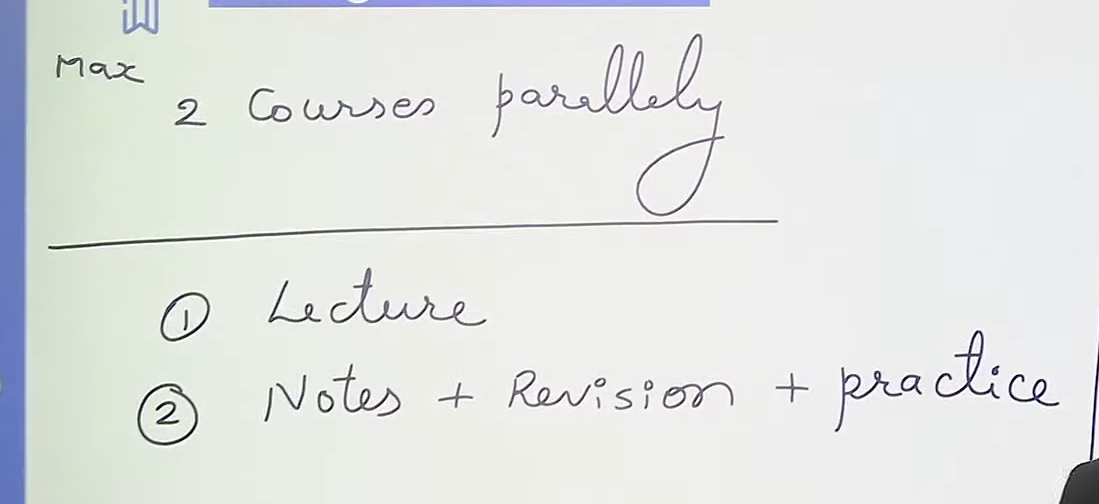 Max
2 Courses parallely
① Lecture
② Notes + Revision + practice